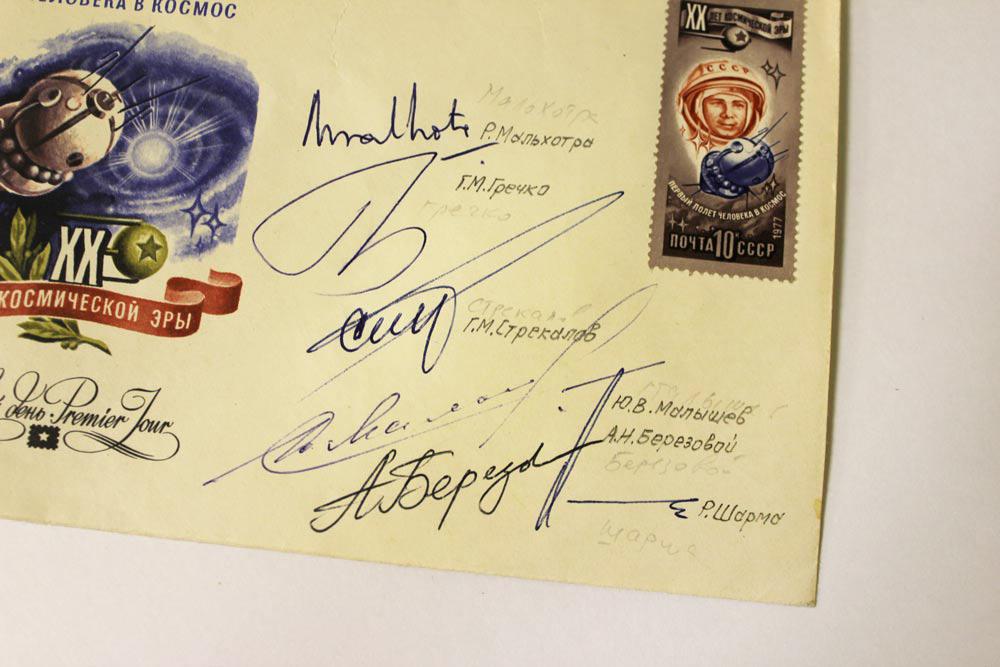 ЧЕЛОВЕКА В КОСМОС
XX ЛЕТ КОСМИЧЕСКОЙ ЭРЫ
СССР
ПЕРВЫЙ ПОЛЕТ ЧЕЛОВЕКА В КОСМОС
1977
ПОЧТА 10К СССР
XX
КОСМИЧЕСКОЙ ЭРЫ
день. Premier Jour
Malhotra
Малхотра
Р.Мальхотра
Г.М.Гречко
Гречко
Стрекалов
Г.М.Стрекалов
Ю.В.Малышев
А.Н.Березовой
Березовой
А.Березо
Р.Шарма
Шарма